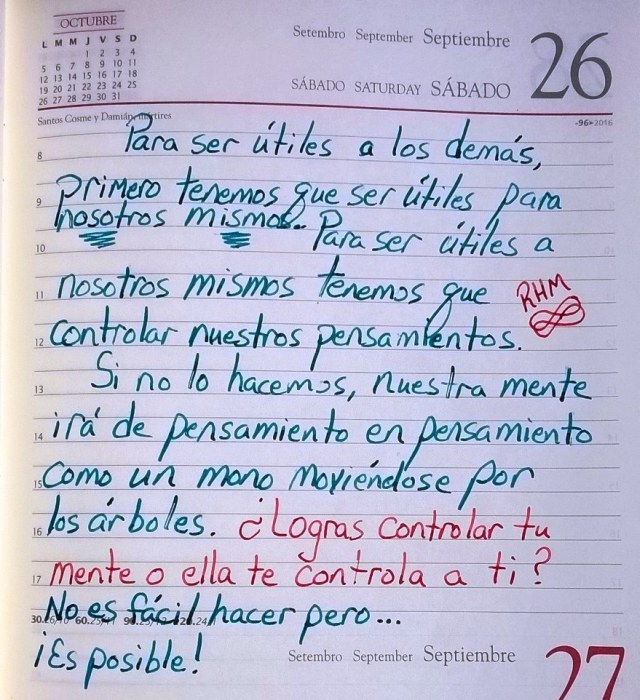 OCTUBRE
L M M J V S D
1 2 3 4
5 6 7 8 9 10 11
12 13 14 15 16 17 18
19 20 21 22 23 24 25
26 27 28 29 30 31
Setembro September Septiembre
26
SÁBADO SATURDAY SÁBADO
Santos Cosme y Damián, mártires
-96•2016
8 Para ser útiles a los demás,
9 primero tenemos que ser útiles para
nosotros mismos. Para ser útiles a
10
11 nosotros mismos tenemos que
RHM
12 controlar nuestros pensamientos.
13 Si no lo hacemos, nuestra mente
14 irá de pensamiento en pensamiento
15 Como un mono moviéndose por
16 los árboles. ¿Logras controlar tu
17 mente o ella te controla a ti?
No es fácil hacer pero...
¡Es posible!
Setembro September Septiembre
27